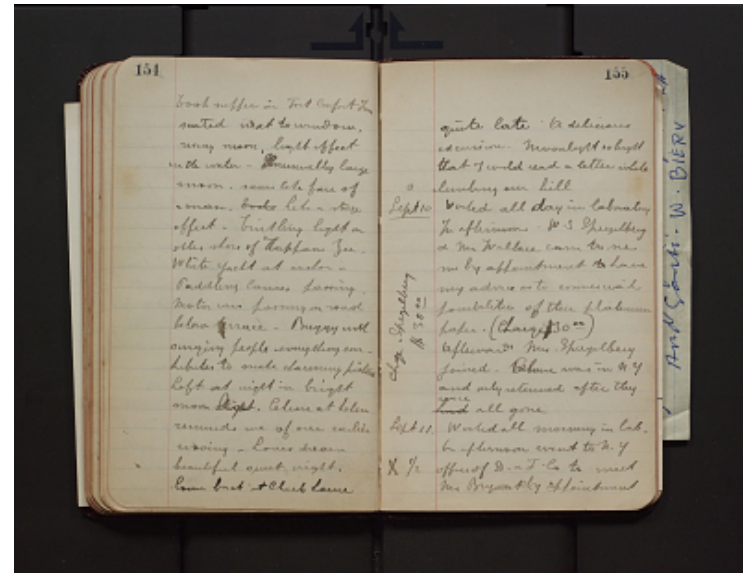 154
took supper in
seated next to window,
rising moon, light effect
on the water - Unusually large
moon. seems like face of
a man. looks like a stage
effect - twinkling light on
other shore of Tappan Zee.
White yacht at anchor -
Paddling Canoes passing.
Motor cars passing on road
below terrace - Buggy with
singing people - everything con-
tributes to make charming picture
Left at night in bright
moon light. at
reminds me of our earlier
- Lovers dream
beautiful quiet night.
back at Club house
155
quite late. A delicious
excursion. Moonlight so bright
that I could read a letter while
climbing our hill
Sept 10
Worked all day in laboratory
In afternoon. W S Spiegelberg
& Mr Wallace came to see
me by appointment to have
my advice as to commercial
possibilities of their platinum
paper. (Charge $30 00)
Chge Spiegelberg
$ 30 00
Afterwards Mrs. Spiegelberg
joined. was in N.Y
and only returned after they
were
had all gone
Sept 11.
Worked all morning in lab.
In afternoon went to N.Y
X 1/2
office of D. - T. Co to meet
Mr Bryant by appointment
W. BIERV